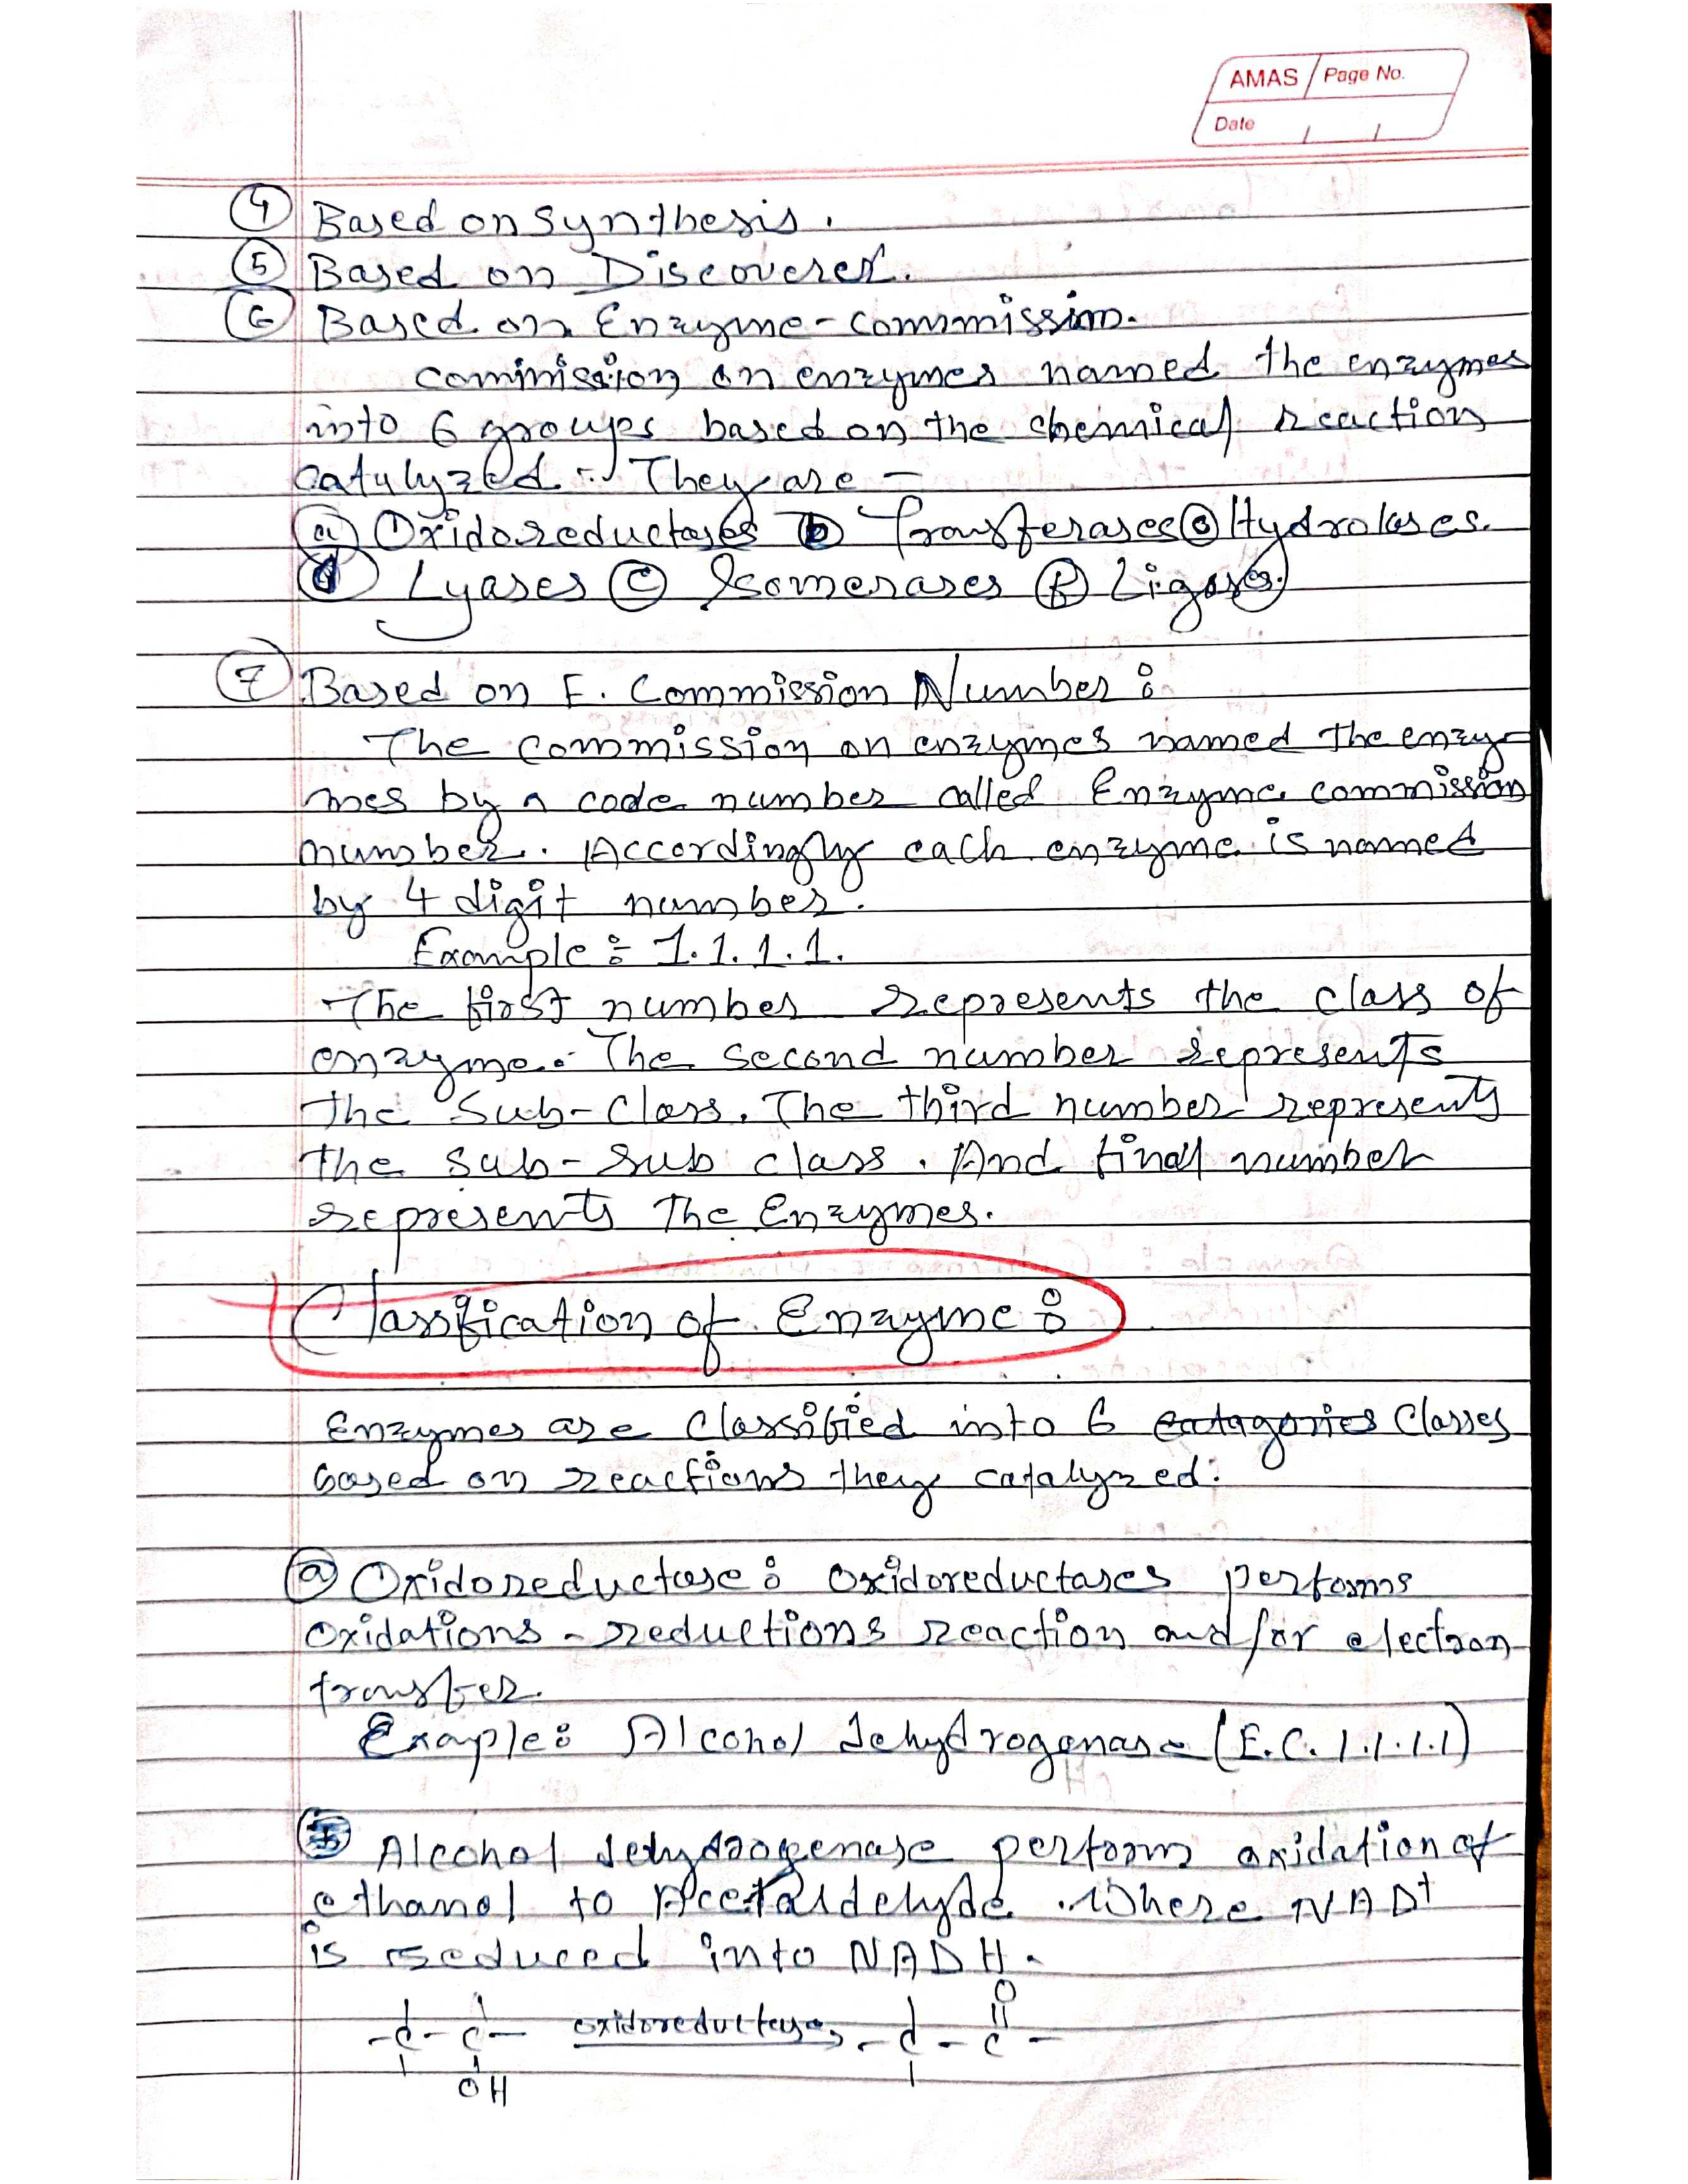 AMAS Page No.
Date / /
④ Based on Synthesis.
⑤ Based on Discoverer.
⑥ Based on Enzyme-commission.
commission on enzymes named the enzymes
into 6 groups based on the chemical reaction
catalyzed. They are -
ⓐ Oxidoreductases ⓑ Transferases ⓒ Hydrolases.
ⓓ Lyases ⓔ Isomerases ⓕ Ligases.
⑦ Based on E. Commission Number:
The commission on enzymes named the enzy-
mes by a code number called Enzyme commission
number. Accordingly each enzyme is named
by 4 digit number.
Example: 1.1.1.1.
The first number represents the class of
enzyme. The second number represents
the Sub-Class. The third number represents
the sub-sub class. And final number
represents The Enzymes.
Classification of Enzyme:
Enzymes are Classified into 6 catagories Classes
based on reactions they catalyzed:
ⓐ Oxidoreductase: oxidoreductases performs
oxidations-reductions reaction and/or electron
transfer.
Example: Alcohol dehydrogenase (E.C. 1.1.1.1)
Alcohol dehydrogenase perform oxidation of
ethanol to Acetaldehyde. Where NAD+
is reduced into NADH.
O
-C-C- oxidoreductases -C-C-
OH